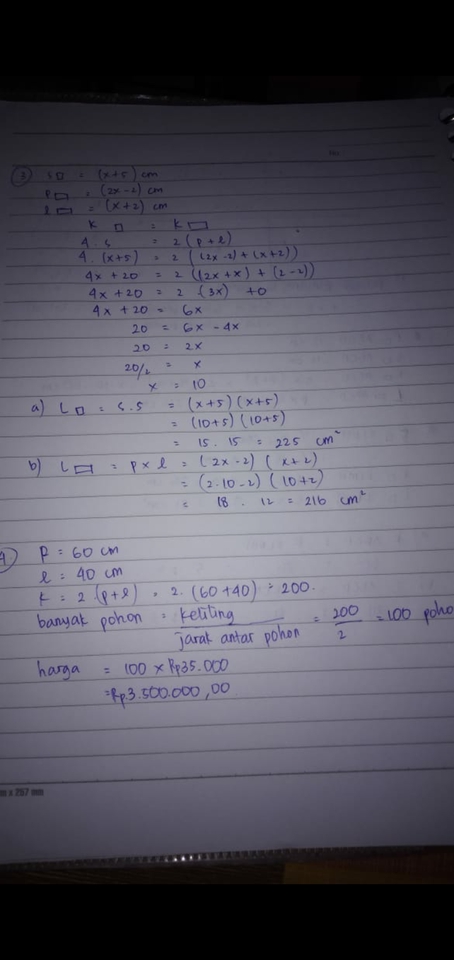 3) s□ = (x+5) cm
p▭ = (2x-2) cm
l▭ = (x+2) cm
K □ = K ▭
4 s = 2 (p+l)
4. (x+5) = 2 ((2x-2)+(x+2))
4x + 20 = 2 ((2x+x) + (2-2))
4x + 20 = 2 (3x) + 0
4x + 20 = 6x
20 = 6x - 4x
20 = 2x
20/2 = x
x = 10
a) L□ = s.s = (x+5)(x+5)
= (10+5)(10+5)
= 15 . 15 = 225 cm²
b) L▭ = p x l = (2x-2)(x+2)
= (2.10-2)(10+2)
= 18 . 12 = 216 cm²
4) P = 60 cm
l = 40 cm
K = 2 (p+l) = 2. (60+40) = 200.
banyak pohon = keliling / jarak antar pohon = 200/2 = 100 poho
harga = 100 x Rp35.000
=Rp3.500.000,00
x 257 mm